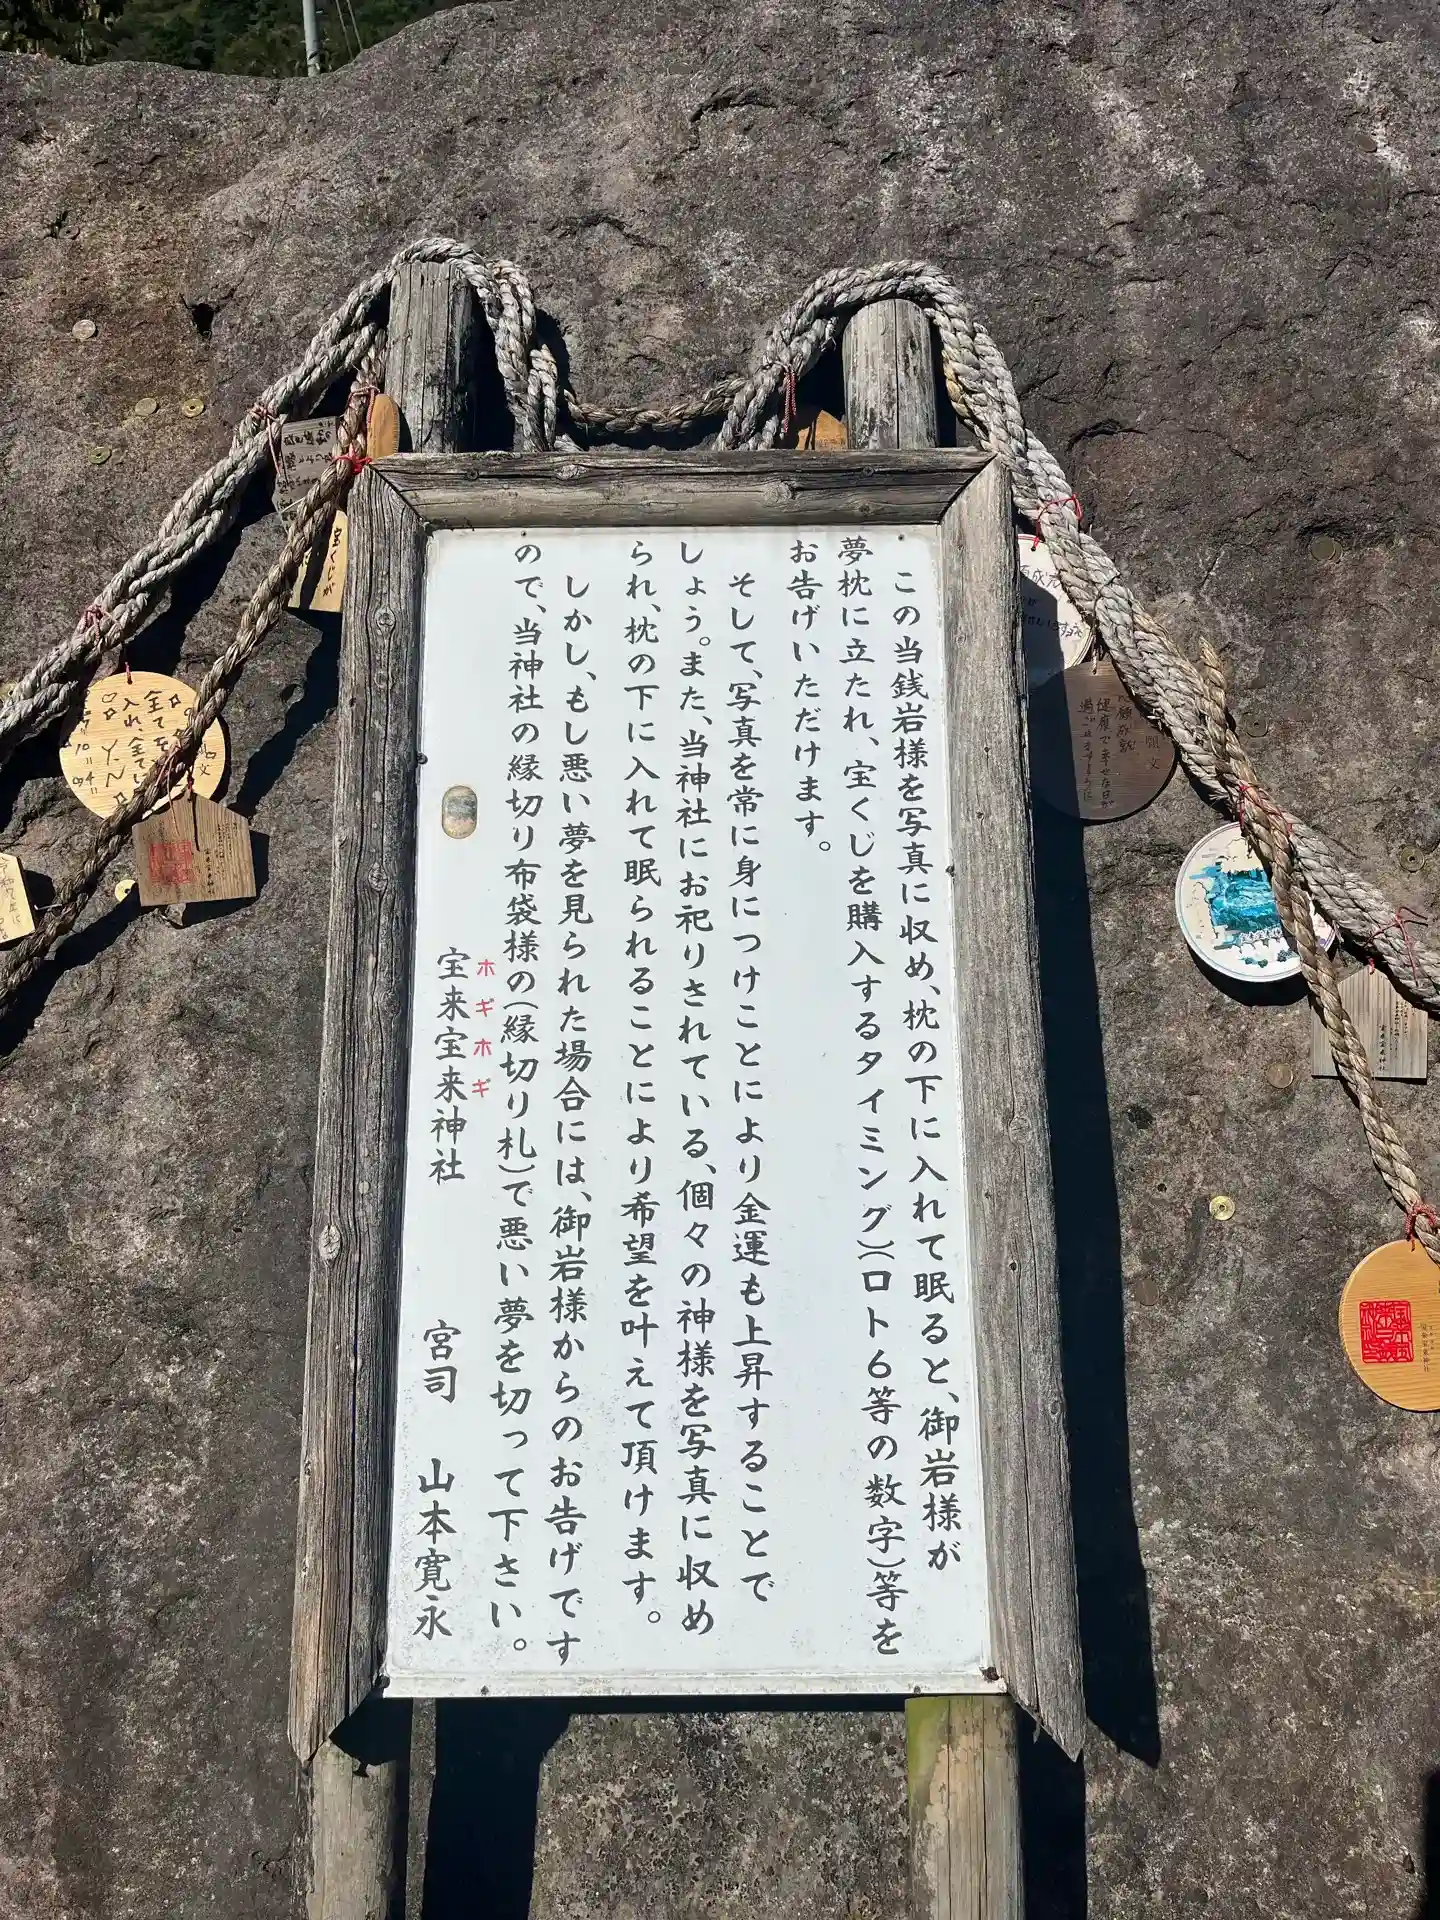 この当銭岩様を写真に収め、枕の下に入れて眠ると、御岩様が
夢枕に立たれ、宝くじを購入するタイミング)(ロト6等の数字)等を
お告げいただけます。
そして、写真を常に身につけことにより金運も上昇することで
しょう。また、当神社にお祀りされている、個々の神様を写真に収め
られ、枕の下に入れて眠られることにより希望を叶えて頂けます。
しかし、もし悪い夢を見られた場合には、御岩様からのお告げです
ので、当神社の縁切り布袋様の(縁切り札)で悪い夢を切って下さい。
ホギホギ
宝来宝来神社 宮司 山本寛永
宝くじが
Y.N
健康で幸せな日が